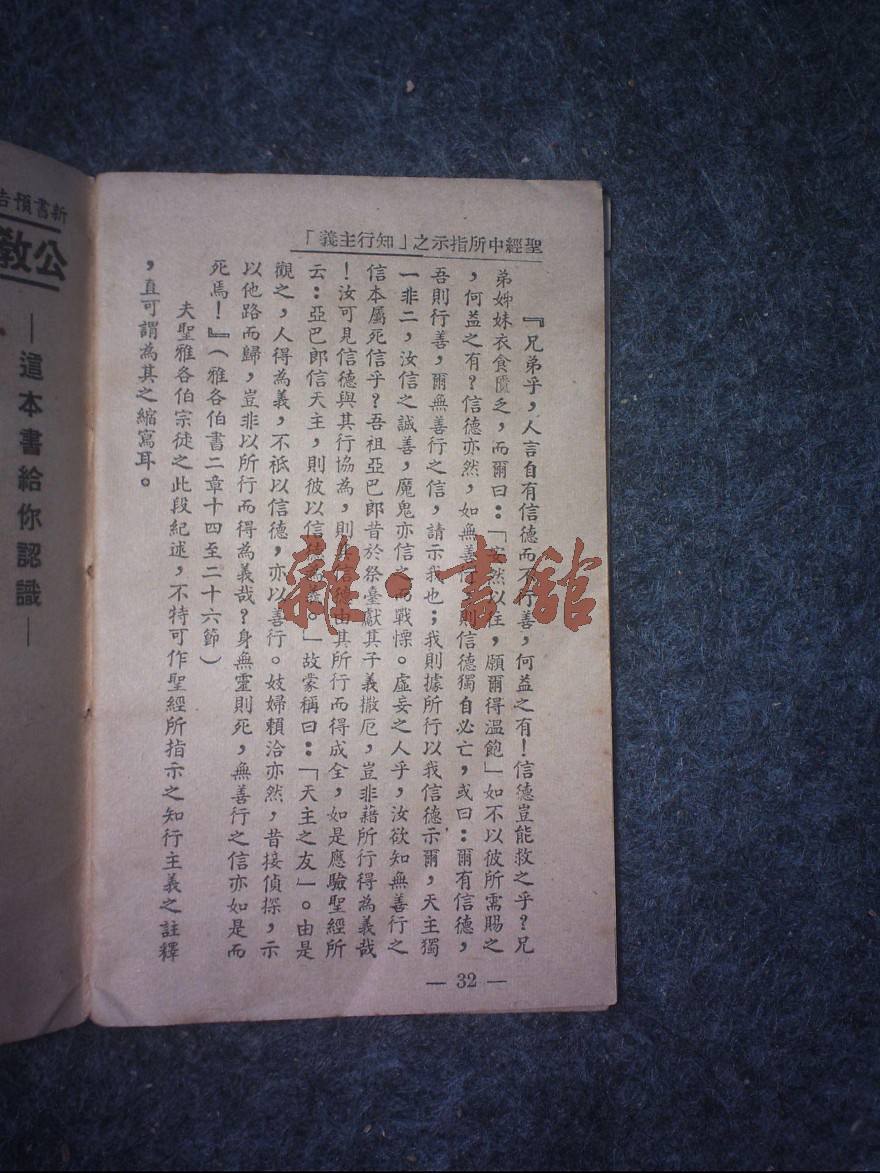 聖經中所指示之「知行主義」
『兄弟乎，人言自有信德而不行善，何益之有！信德豈能救之乎？兄
弟姊妹衣食匱乏，而爾曰：「安然以往，願爾得溫飽」如不以彼所需賜之
，何益之有？信德亦然，如無善行，則信德獨自必亡，或曰：爾有信德，
吾則行善，爾無善行之信，請示我也；我則據所行以我信德示爾，天主獨
一非二，汝信之誠善，魔鬼亦信之而戰慄。虛妄之人乎，汝欲知無善行之
信本屬死信乎？吾祖亞巴郎昔於祭臺獻其子義撒厄，豈非藉所行得為義哉
！汝可見信德與其行協為，則其信德由其所行而得成全，如是應驗聖經所
云：亞巴郎信天主，則彼以信德為義。」故蒙稱曰：「天主之友」。由是
觀之，人得為義，不祗以信德，亦以善行。妓婦賴洽亦然，昔接偵探，示
以他路而歸，豈非以所行而得為義哉？身無靈則死，無善行之信亦如是而
死焉！』（雅各伯書二章十四至二十六節）
夫聖雅各伯宗徒之此段紀述，不特可作聖經所指示之知行主義之註釋
，直可謂為其之縮寫耳。
— 32 —
新書預告
公教
—這本書給你認識—
雜·書館